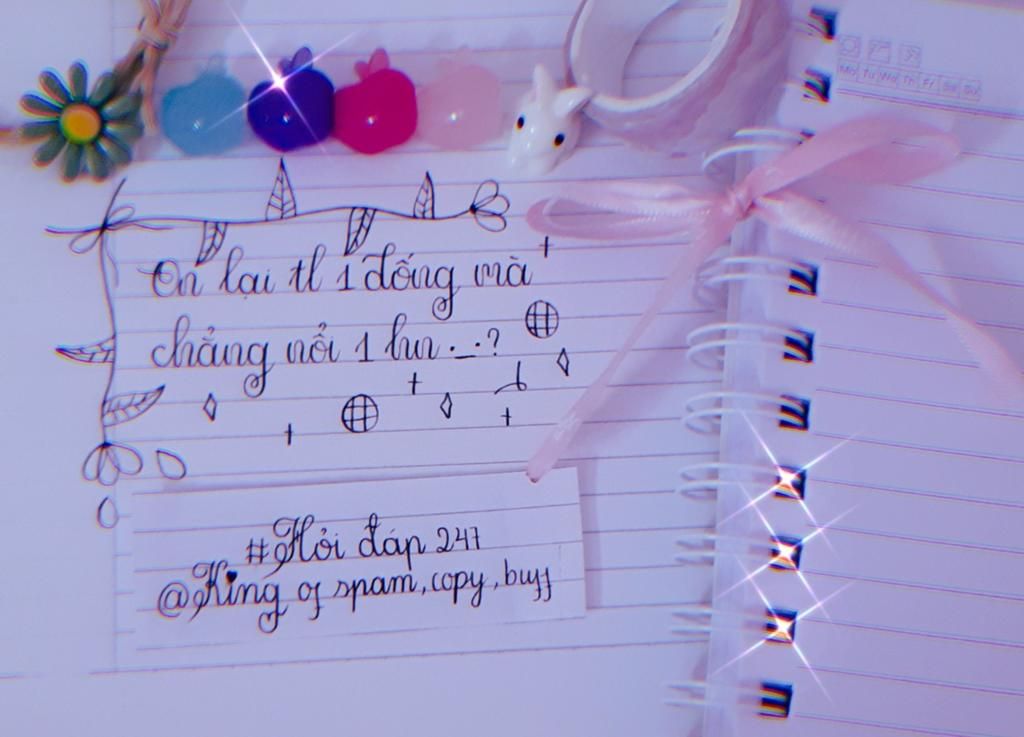 Mo Tu We Th Fr Sa Su
On lại tl 1 đống mà
chẳng nổi 1 lur ._.?
#Hỏi đáp 247
@King of spam, copy, buff